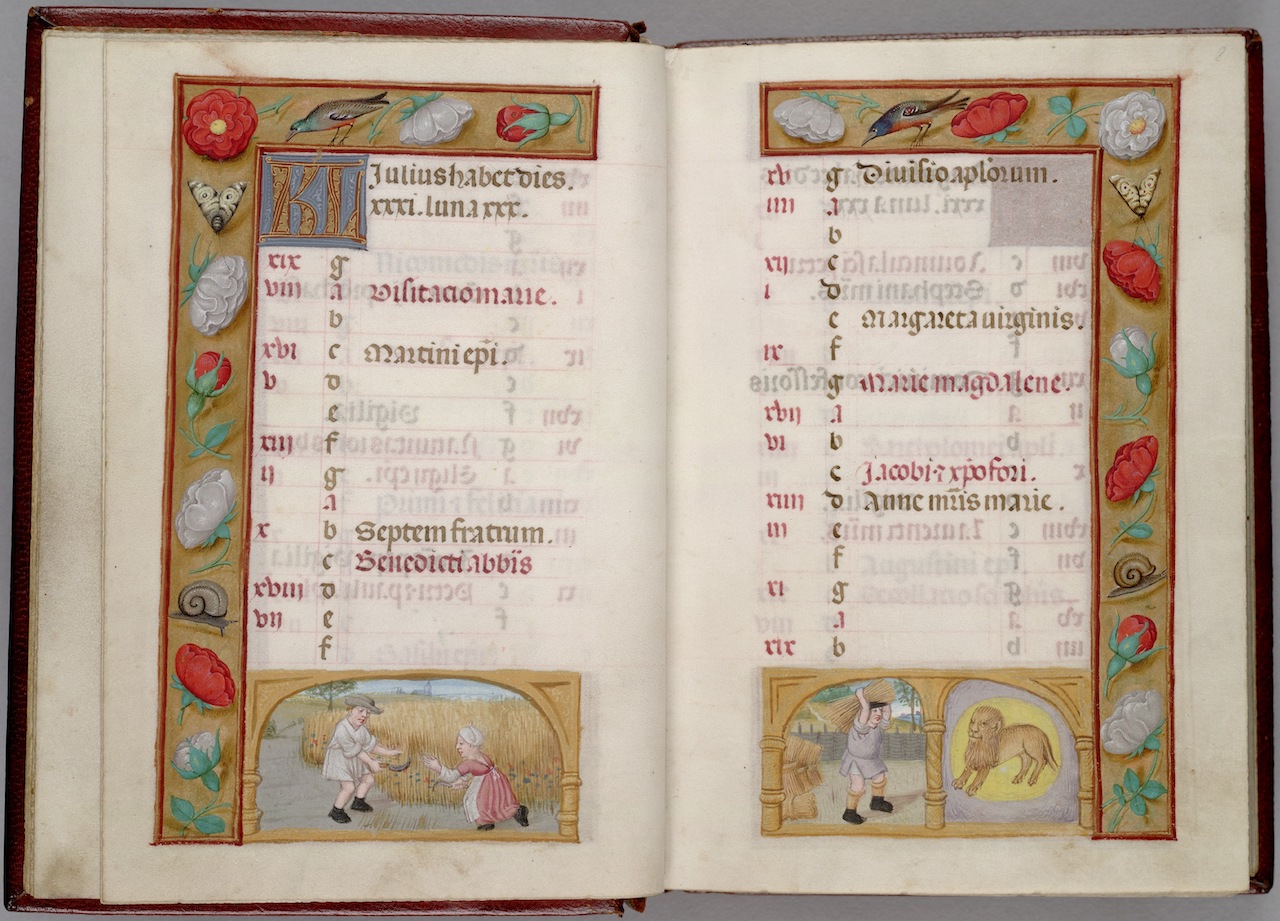 KL Julius habet dies.
xxxi. luna xxx.
xix g
viii a Visitacio marie.
b
xvi c Martini ep̄i.
v d
e
xiii f
ii g
a
x b Septem fratrum.
c Benedicti abb̄is
xviii d
vii e
f
8
xv g Divisio ap̄lorum.
iiii a
b
xii c
i d
e Margareta uirginis.
ix f
g Marie magdalene.
xvii a
vi b
c Jacobi ⁊ xp̄ofori.
xiiii d Anne mr̄is marie.
iii e
f
xi g
a
xix b